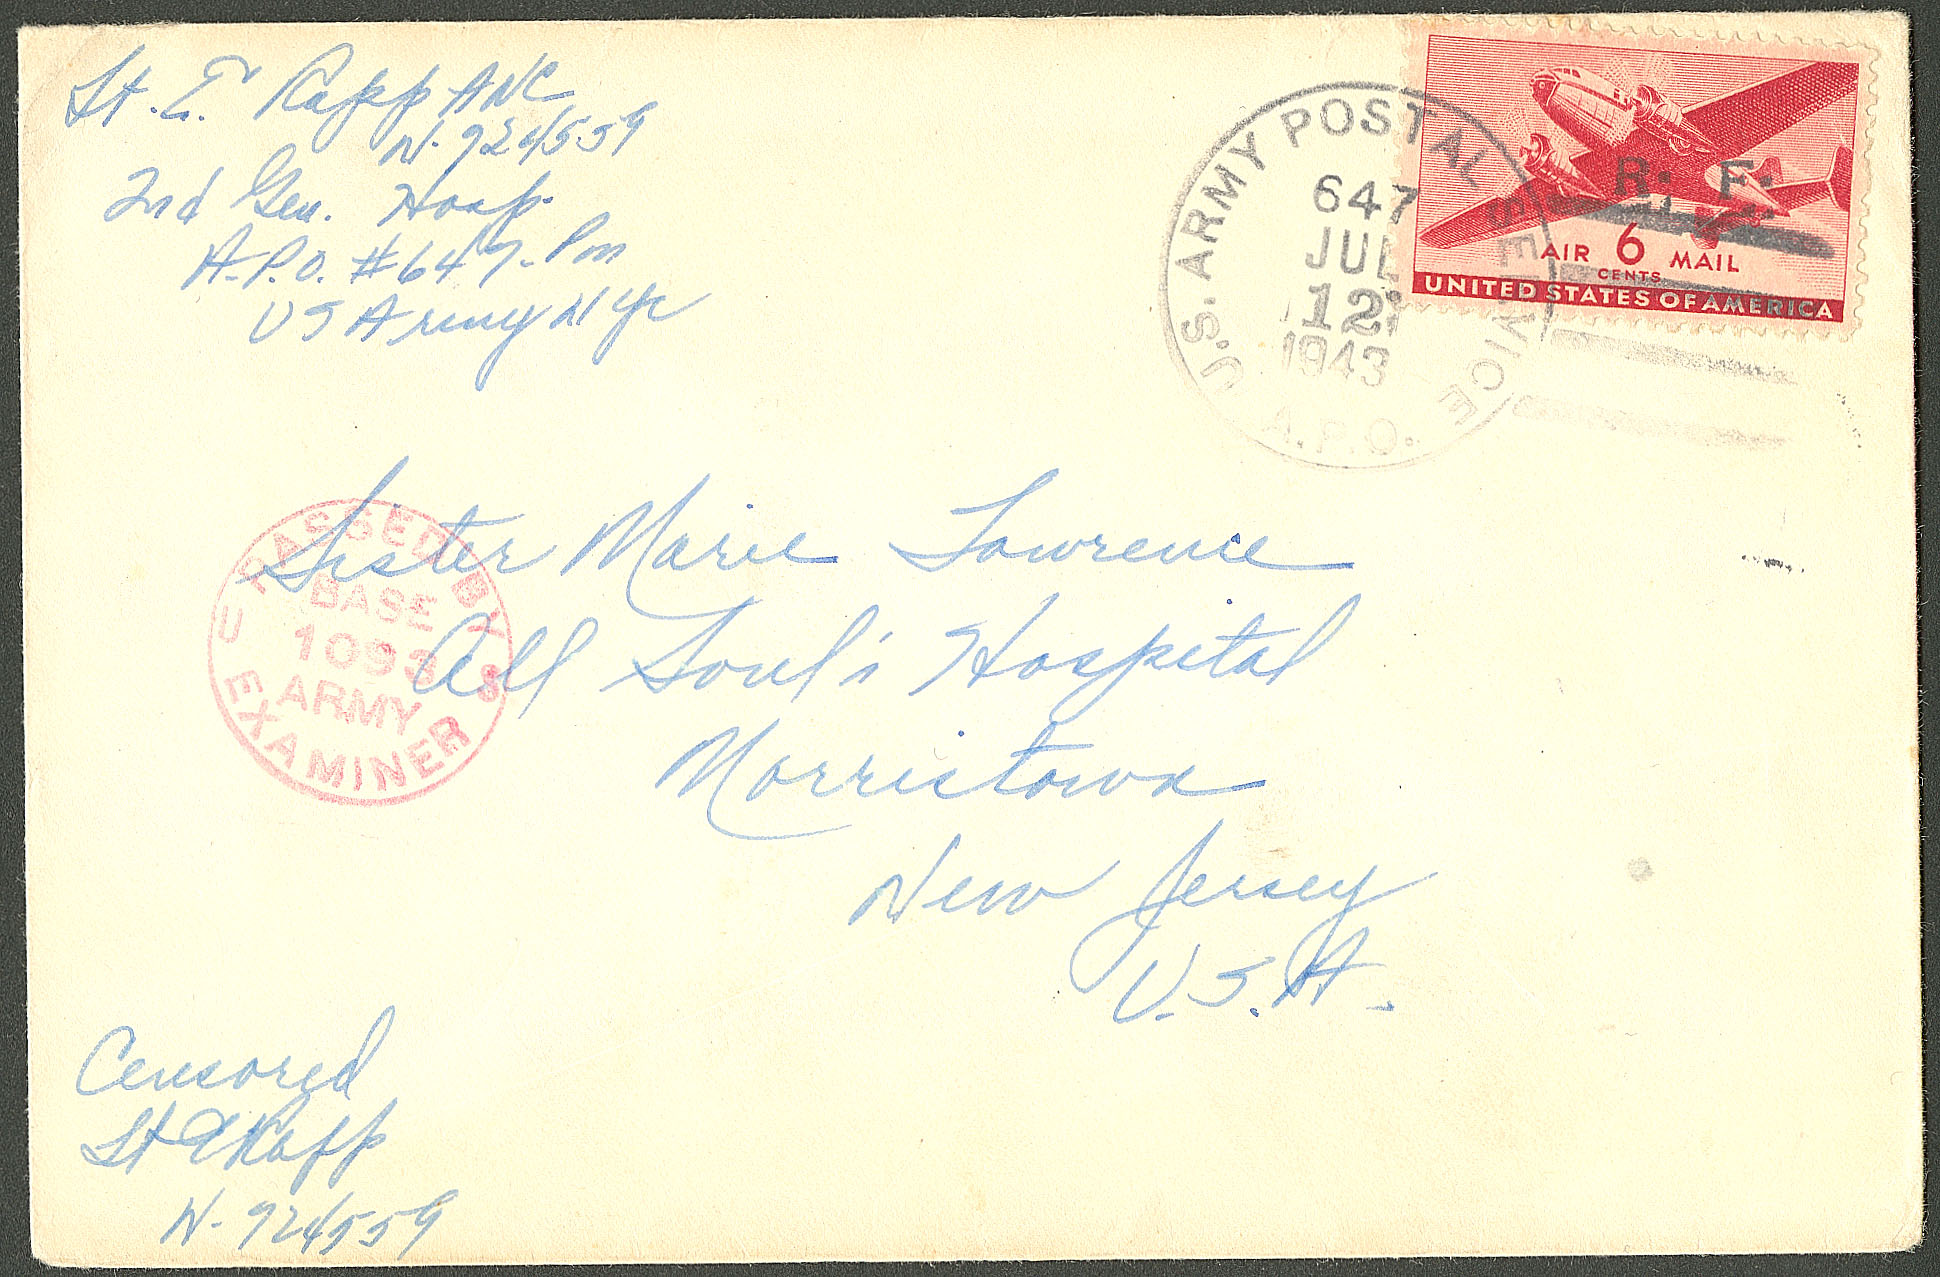 Lt. E. Rapp ANC
N-924559
2nd Gen. Hosp.
A.P.O. #647-Pm
US Army NYC
U.S. ARMY POSTAL SERVICE
647
JUL
12
1943
A.P.O.
R. F.
AIR 6 MAIL
CENTS
UNITED STATES OF AMERICA
PASSED BY
BASE
U 1093 S
ARMY
EXAMINER
Sister Marie Lawrence
All Soul's Hospital
Morristown
New Jersey
U.S.A.
Censored
Lt E Rapp
N-924559